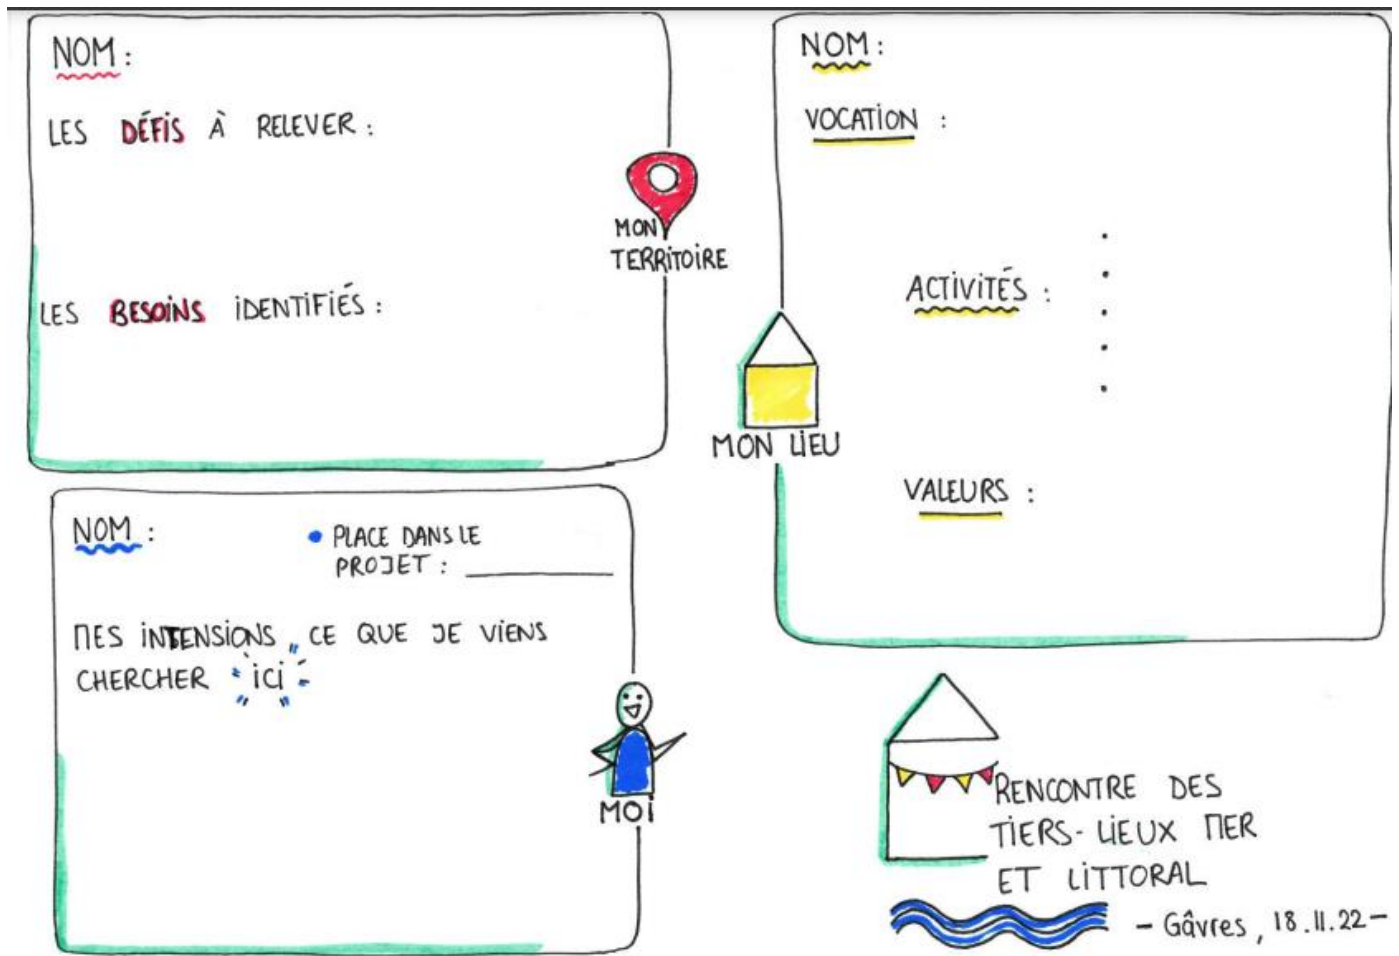 NOM :
LES DÉFIS À RELEVER :
LES BESOINS IDENTIFIÉS :
MON
TERRITOIRE
NOM :
VOCATION :
ACTIVITÉS :
VALEURS :
MON LIEU
NOM :
• PLACE DANS LE
PROJET :
MES INTENSIONS, CE QUE JE VIENS
CHERCHER ICI
MOI
RENCONTRE DES
TIERS-LIEUX MER
ET LITTORAL
- Gâvres, 18.11.22 -